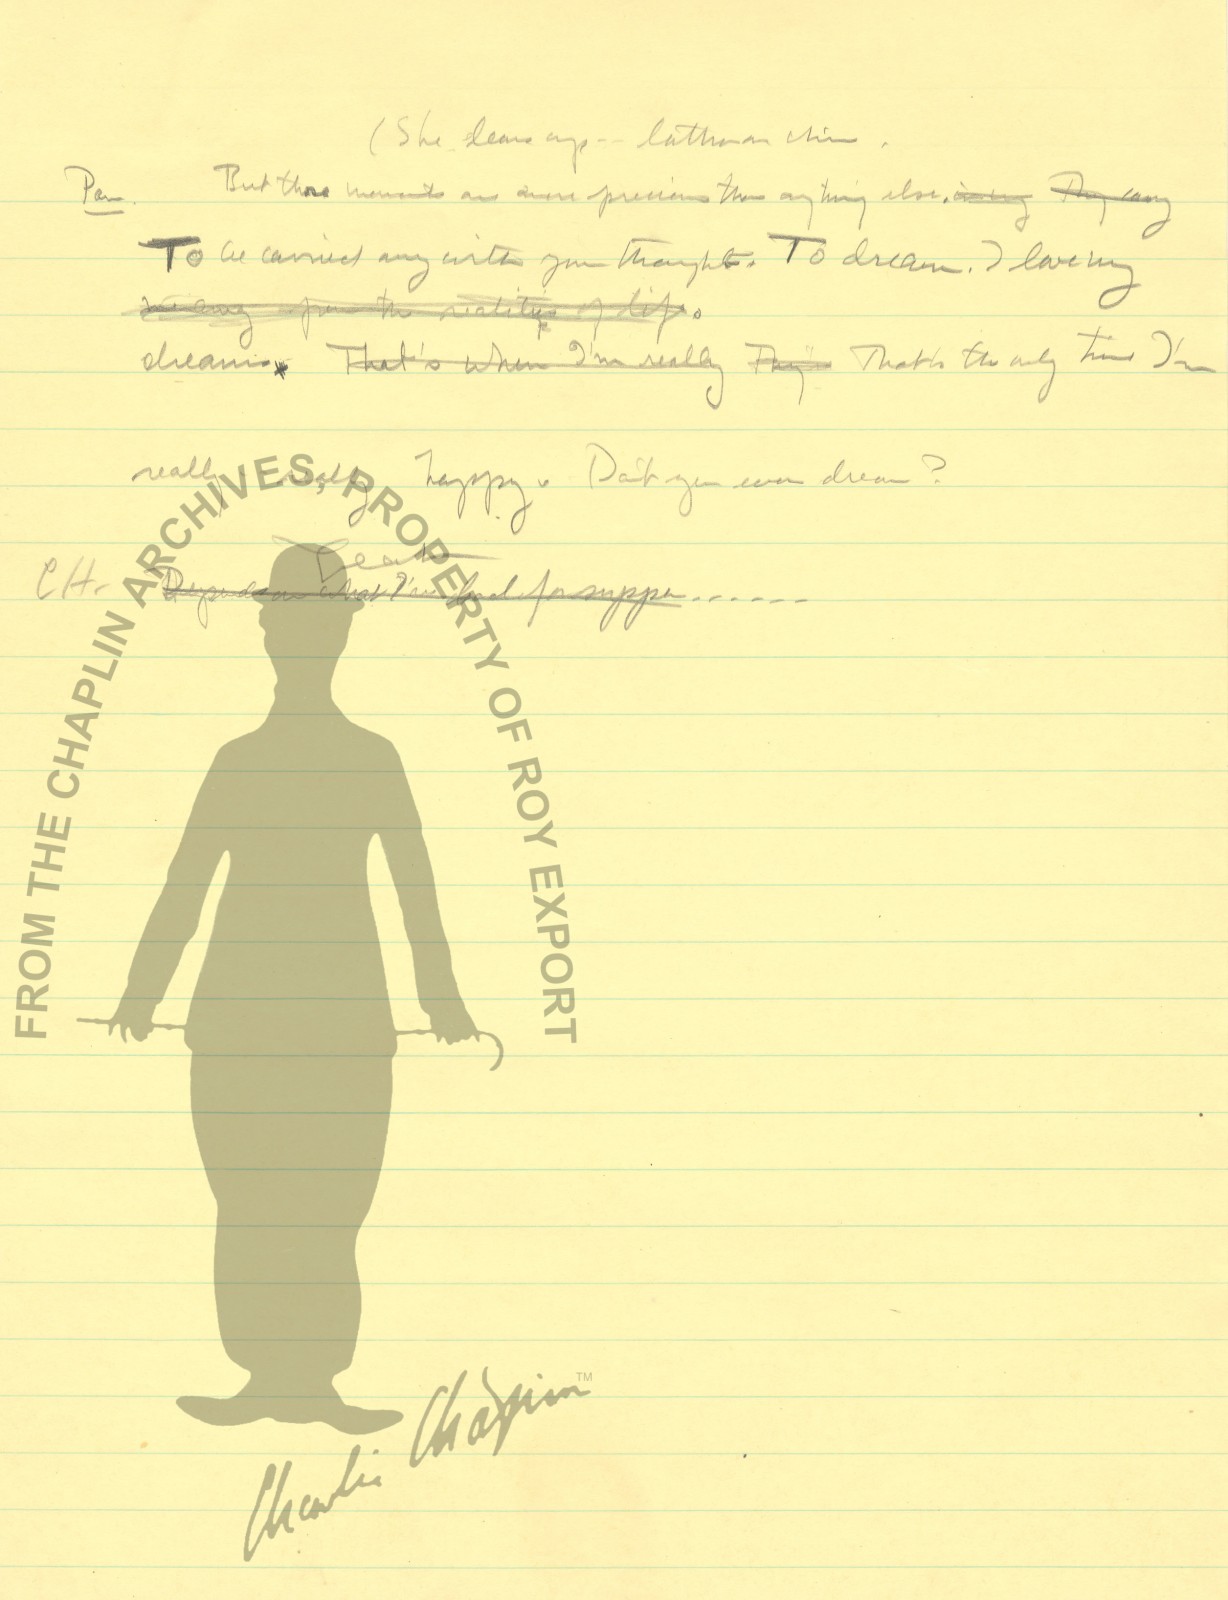 (She clears up --
Pau. But those moments are more precious than anything else. away They carry
To be carried away with your thoughts. To dream. I love my
away from the realities of life.
dreams. That's when I'm really They're That's the only time I'm
really really happy. Don't you ever dream?
CH. Depends on what I've had for supper......
FROM THE CHAPLIN ARCHIVES, PROPERTY OF ROY EXPORT
Charlie Chaplin™